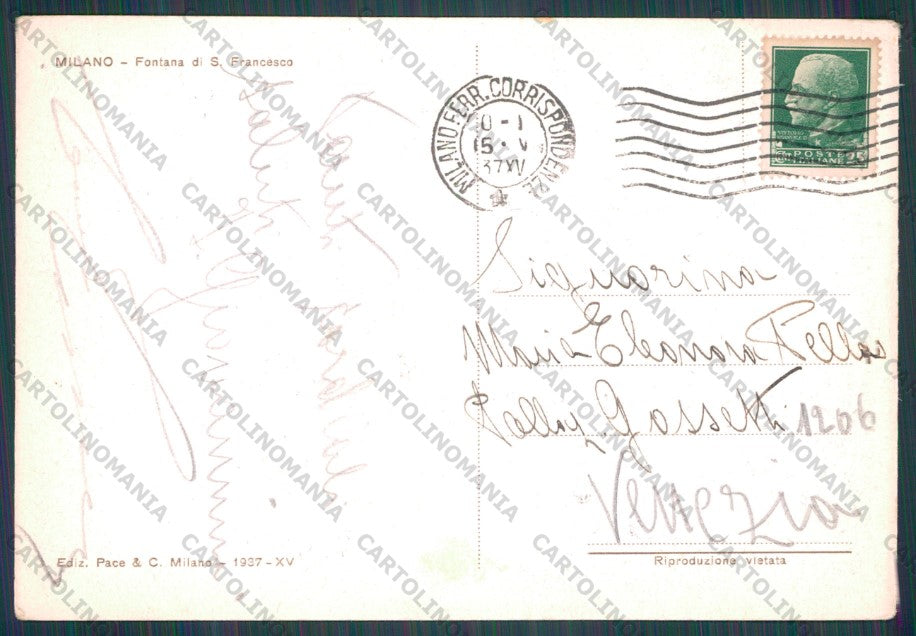 MILANO - Fontana di S. Francesco
Tanti cordiali
saluti
MILANO.FERR.CORRISPONDENZE
0-1
15. V
37XV
POSTE
ITALIANE
Signorina
Maria Eleonora Pellas
Gossetti 1206
Venezia
Ediz. Pace & C. Milano - 1937-XV
Riproduzione vietata
CARTOLINOMANIA